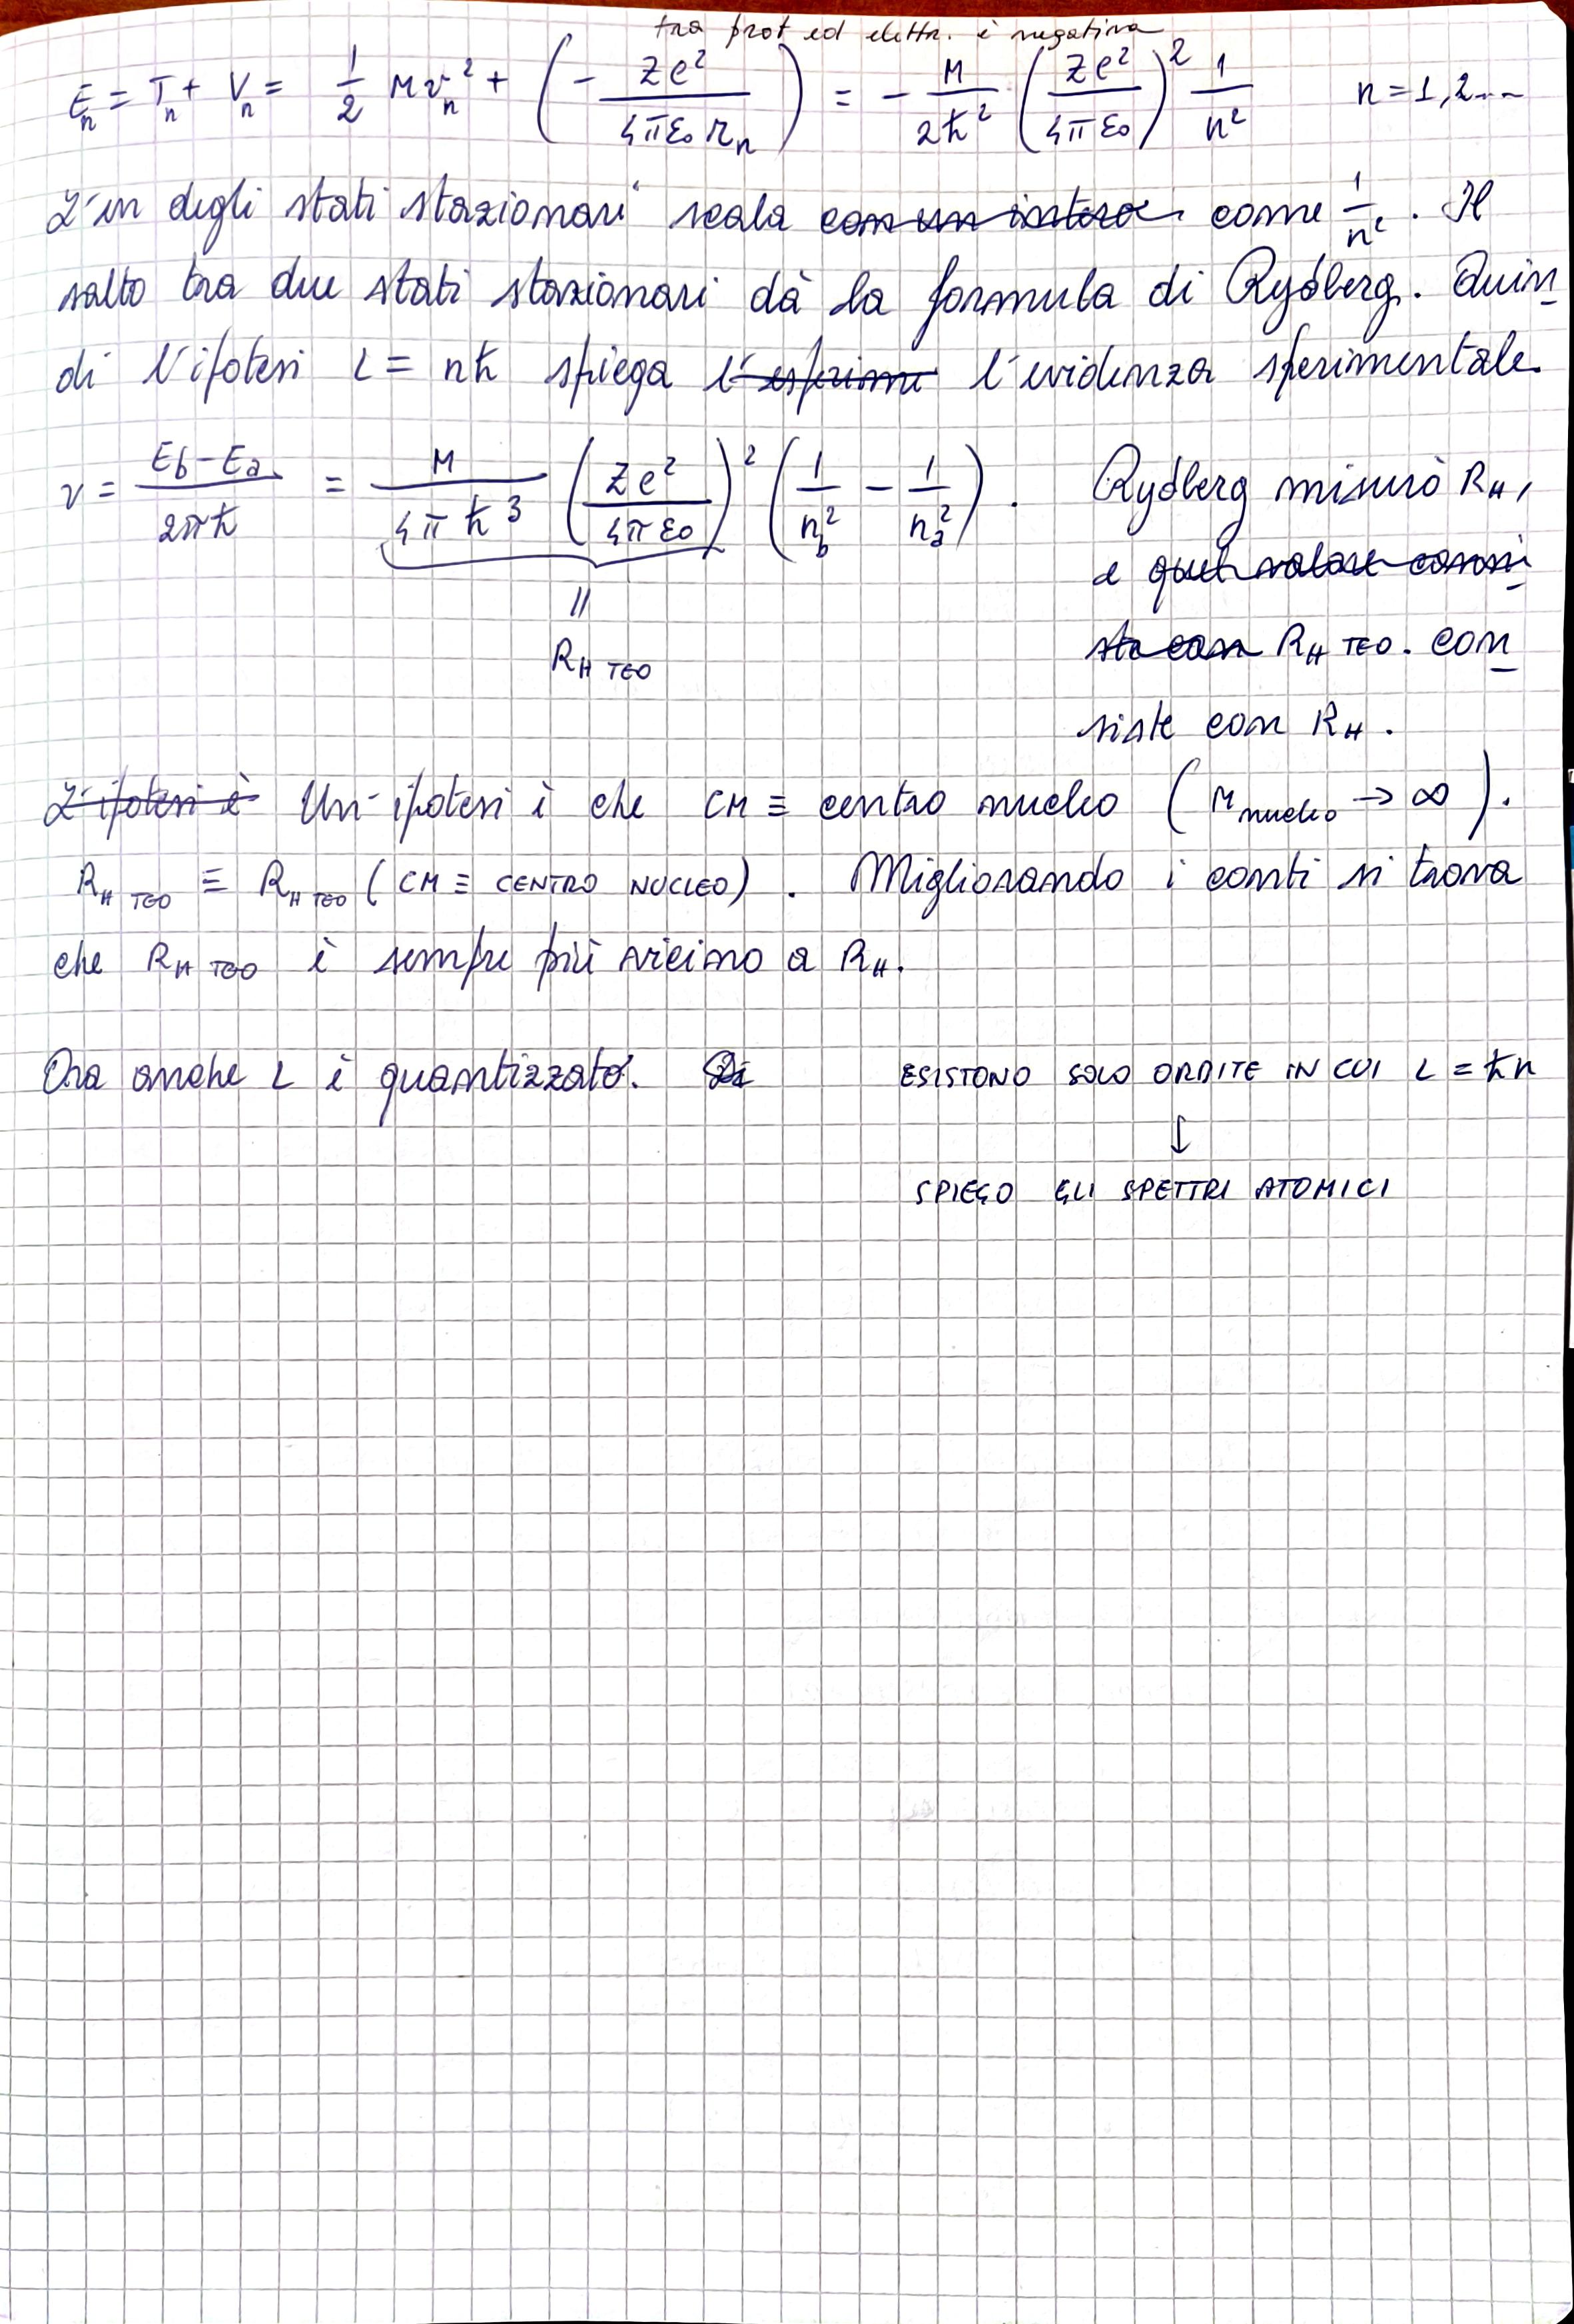 tra prot ed elettr. è negativa
E_n = T_n + V_n = 1/2 M v_n^2 + ( - Ze^2 / 4πε₀ r_n ) = - M / 2ħ^2 ( Ze^2 / 4πε₀ )^2 1/n^2 n = 1,2...
L'en degli stati stazionari scala con un intero come 1/n^2 . Il
salto tra due stati stazionari dà la formula di Rydberg. Quin
di l'ipotesi L = nħ spiega l'esperime l'evidenza sperimentale.
ν = E_b - E_a / 2πħ = M / 4πħ^3 ( Ze^2 / 4πε₀ )^2 ( 1/n_b^2 - 1/n_a^2 ) . Rydberg misurò R_H,
e quel valore consi
ste con R_H TEO. con
siste con R_H.
||
R_H TEO
L'ipotesi è Un'ipotesi è che CM ≡ centro nucleo ( M_nucleo → ∞ ).
R_H TEO ≡ R_H TEO ( CM ≡ CENTRO NUCLEO ) . Migliorando i conti si trova
che R_H TEO è sempre più vicino a R_H.
Ora anche L è quantizzato. ESISTONO SOLO ORBITE IN CUI L = ħn
↓
SPIEGO GLI SPETTRI ATOMICI